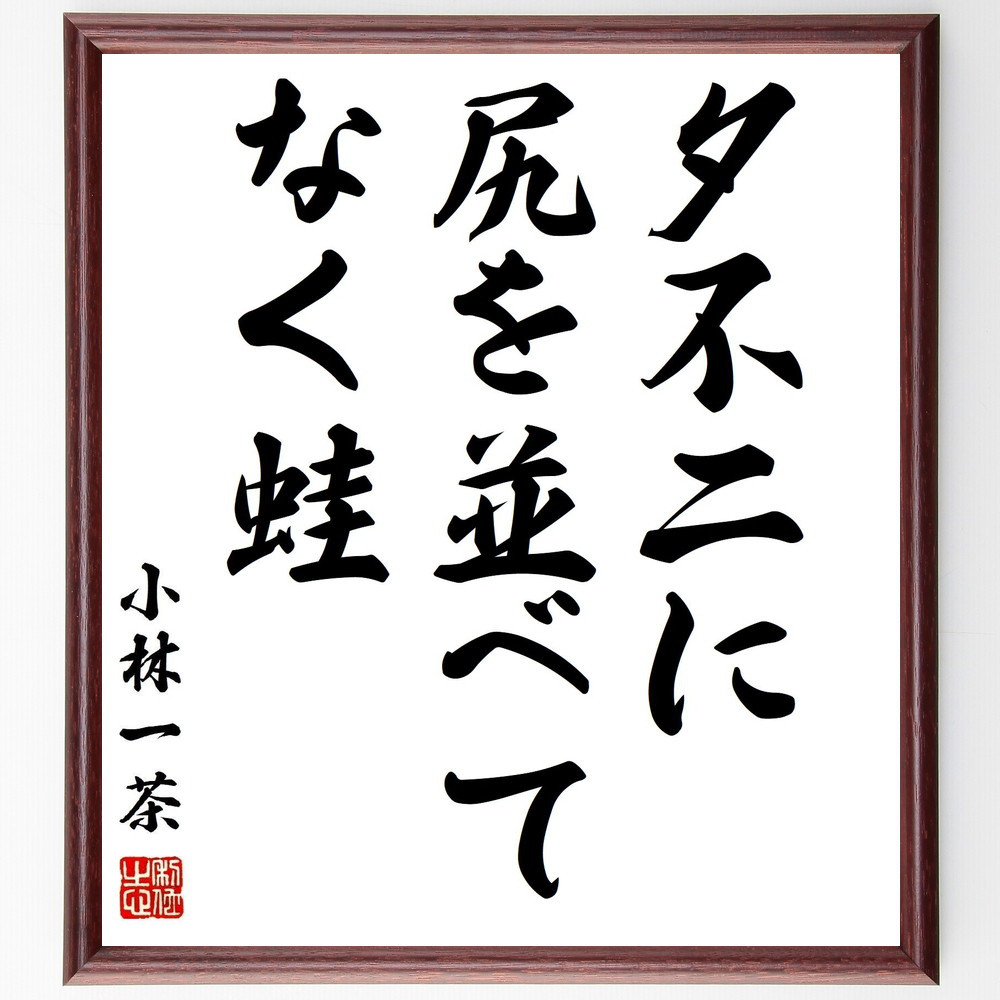 夕不二に
尻を並べて
なく蛙
小林一茶